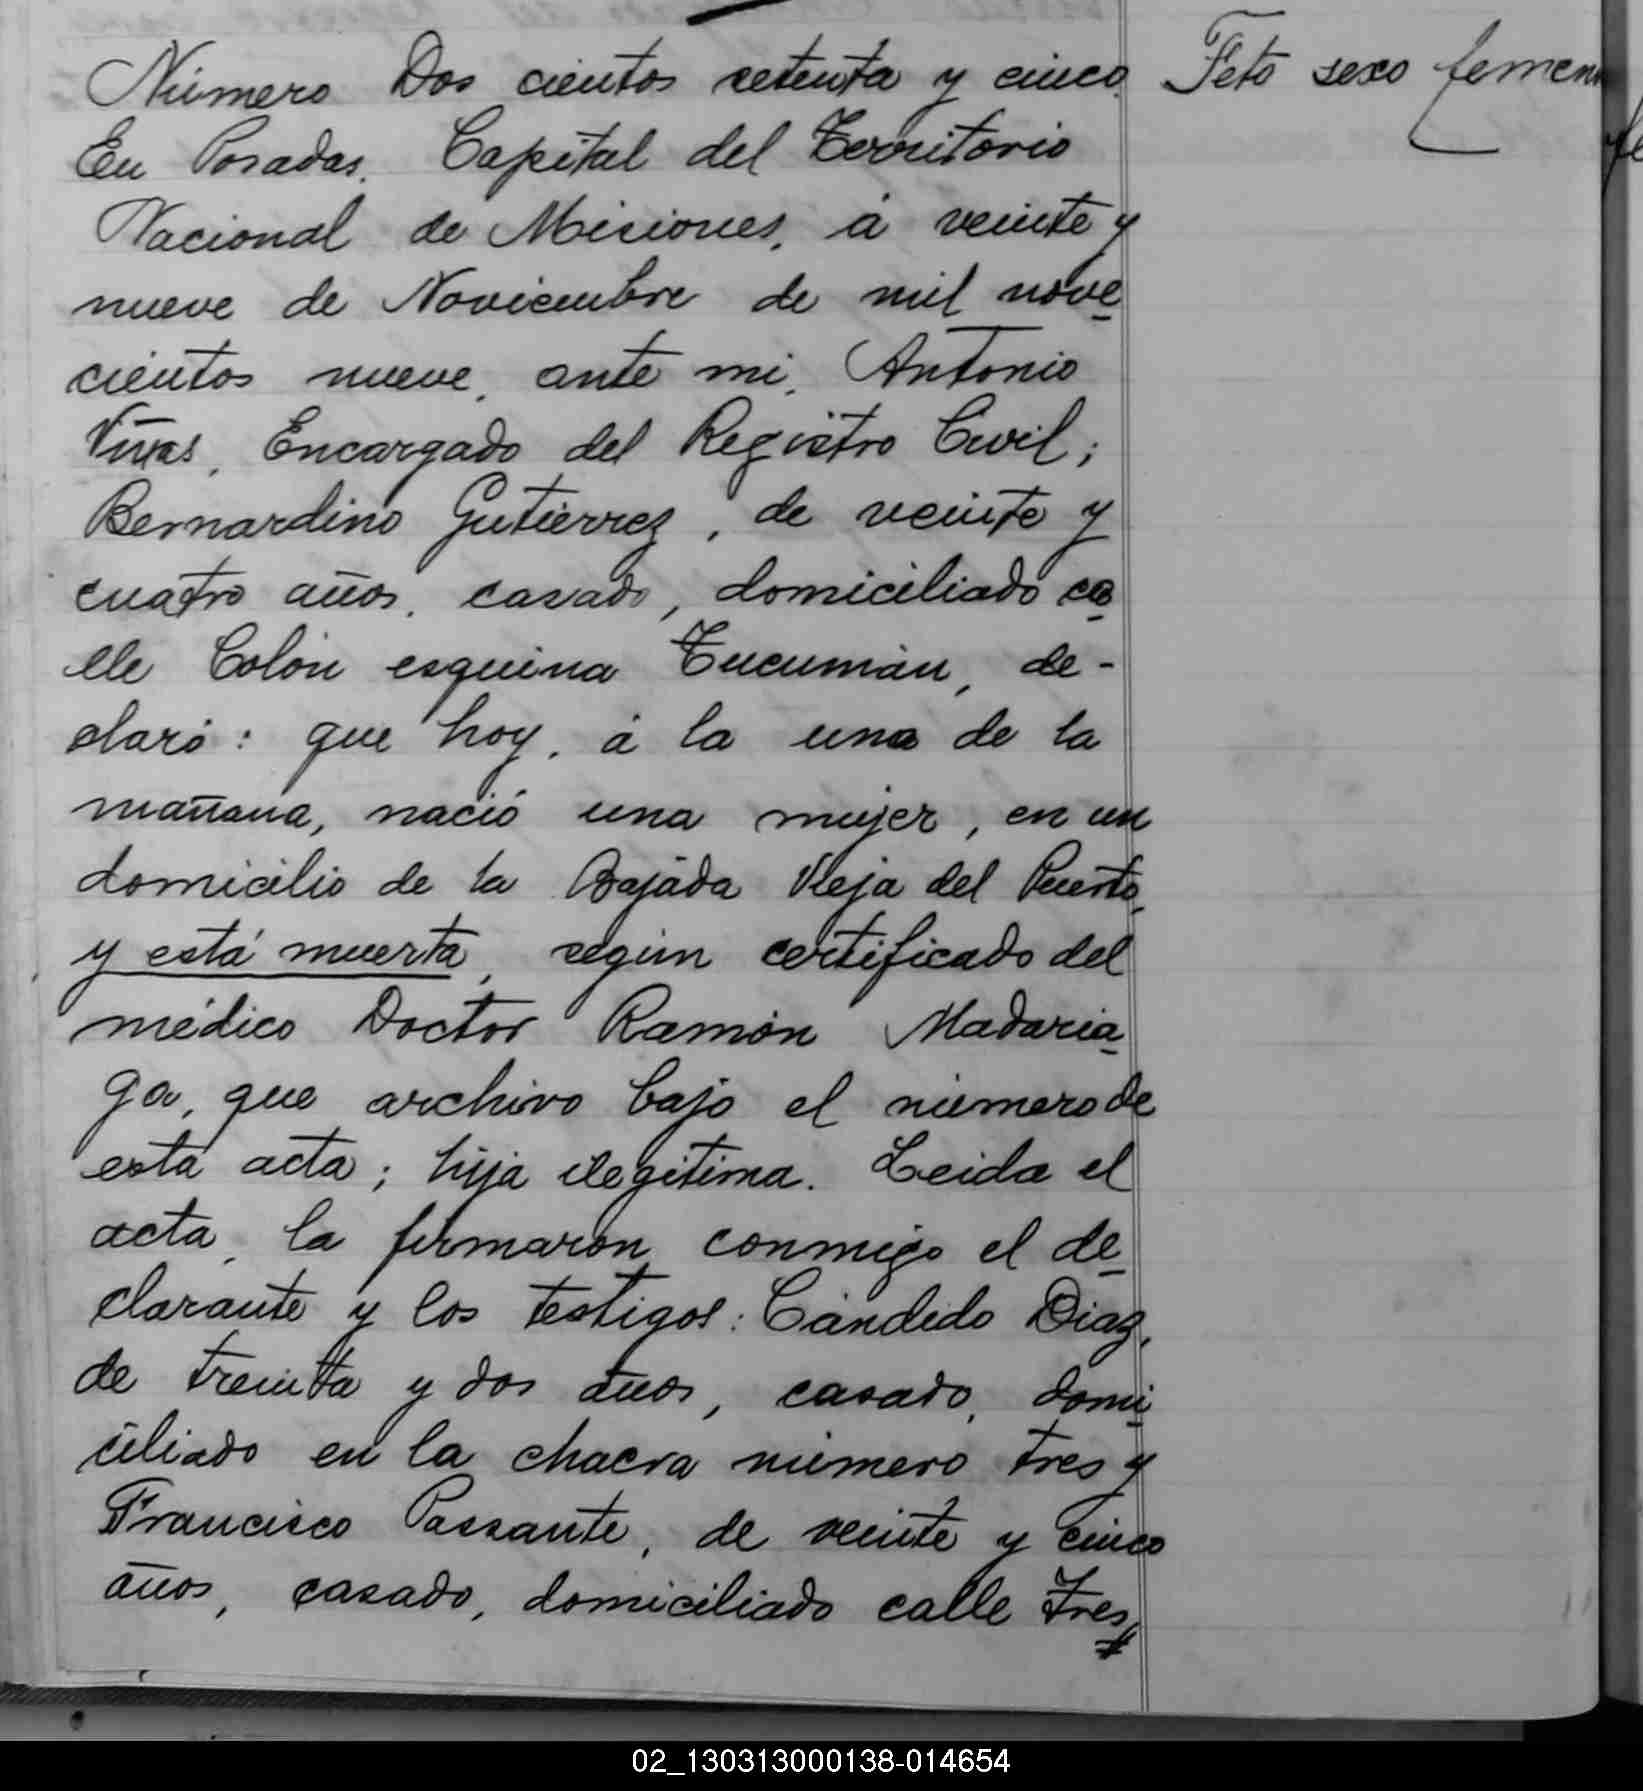 Número Dos cientos setenta y cinco
Feto sexo femeni
En Posadas, Capital del Territorio
Nacional de Misiones, á veinte y
nueve de Noviembre de mil nove
cientos nueve, ante mi, Antonio
Viñas, Encargado del Registro Civil;
Bernardino Gutiérrez, de veinte y
cuatro años, casado, domiciliado ca
lle Colón esquina Tucumán, de-
claró: que hoy, á la una de la
mañana, nació una mujer, en un
domicilio de la Bajada Vieja del Puerto,
y está muerta, según certificado del
médico Doctor Ramón Madaria
ga, que archivo bajo el número de
esta acta; hija ilegítima. Leida el
acta, la firmaron conmigo el de
clarante y los testigos: Cándido Diaz,
de treinta y dos años, casado, domi
ciliado en la chacra número tres y
Francisco Passante, de veinte y cinco
años, casado, domiciliado calle Tres
02_130313000138-014654